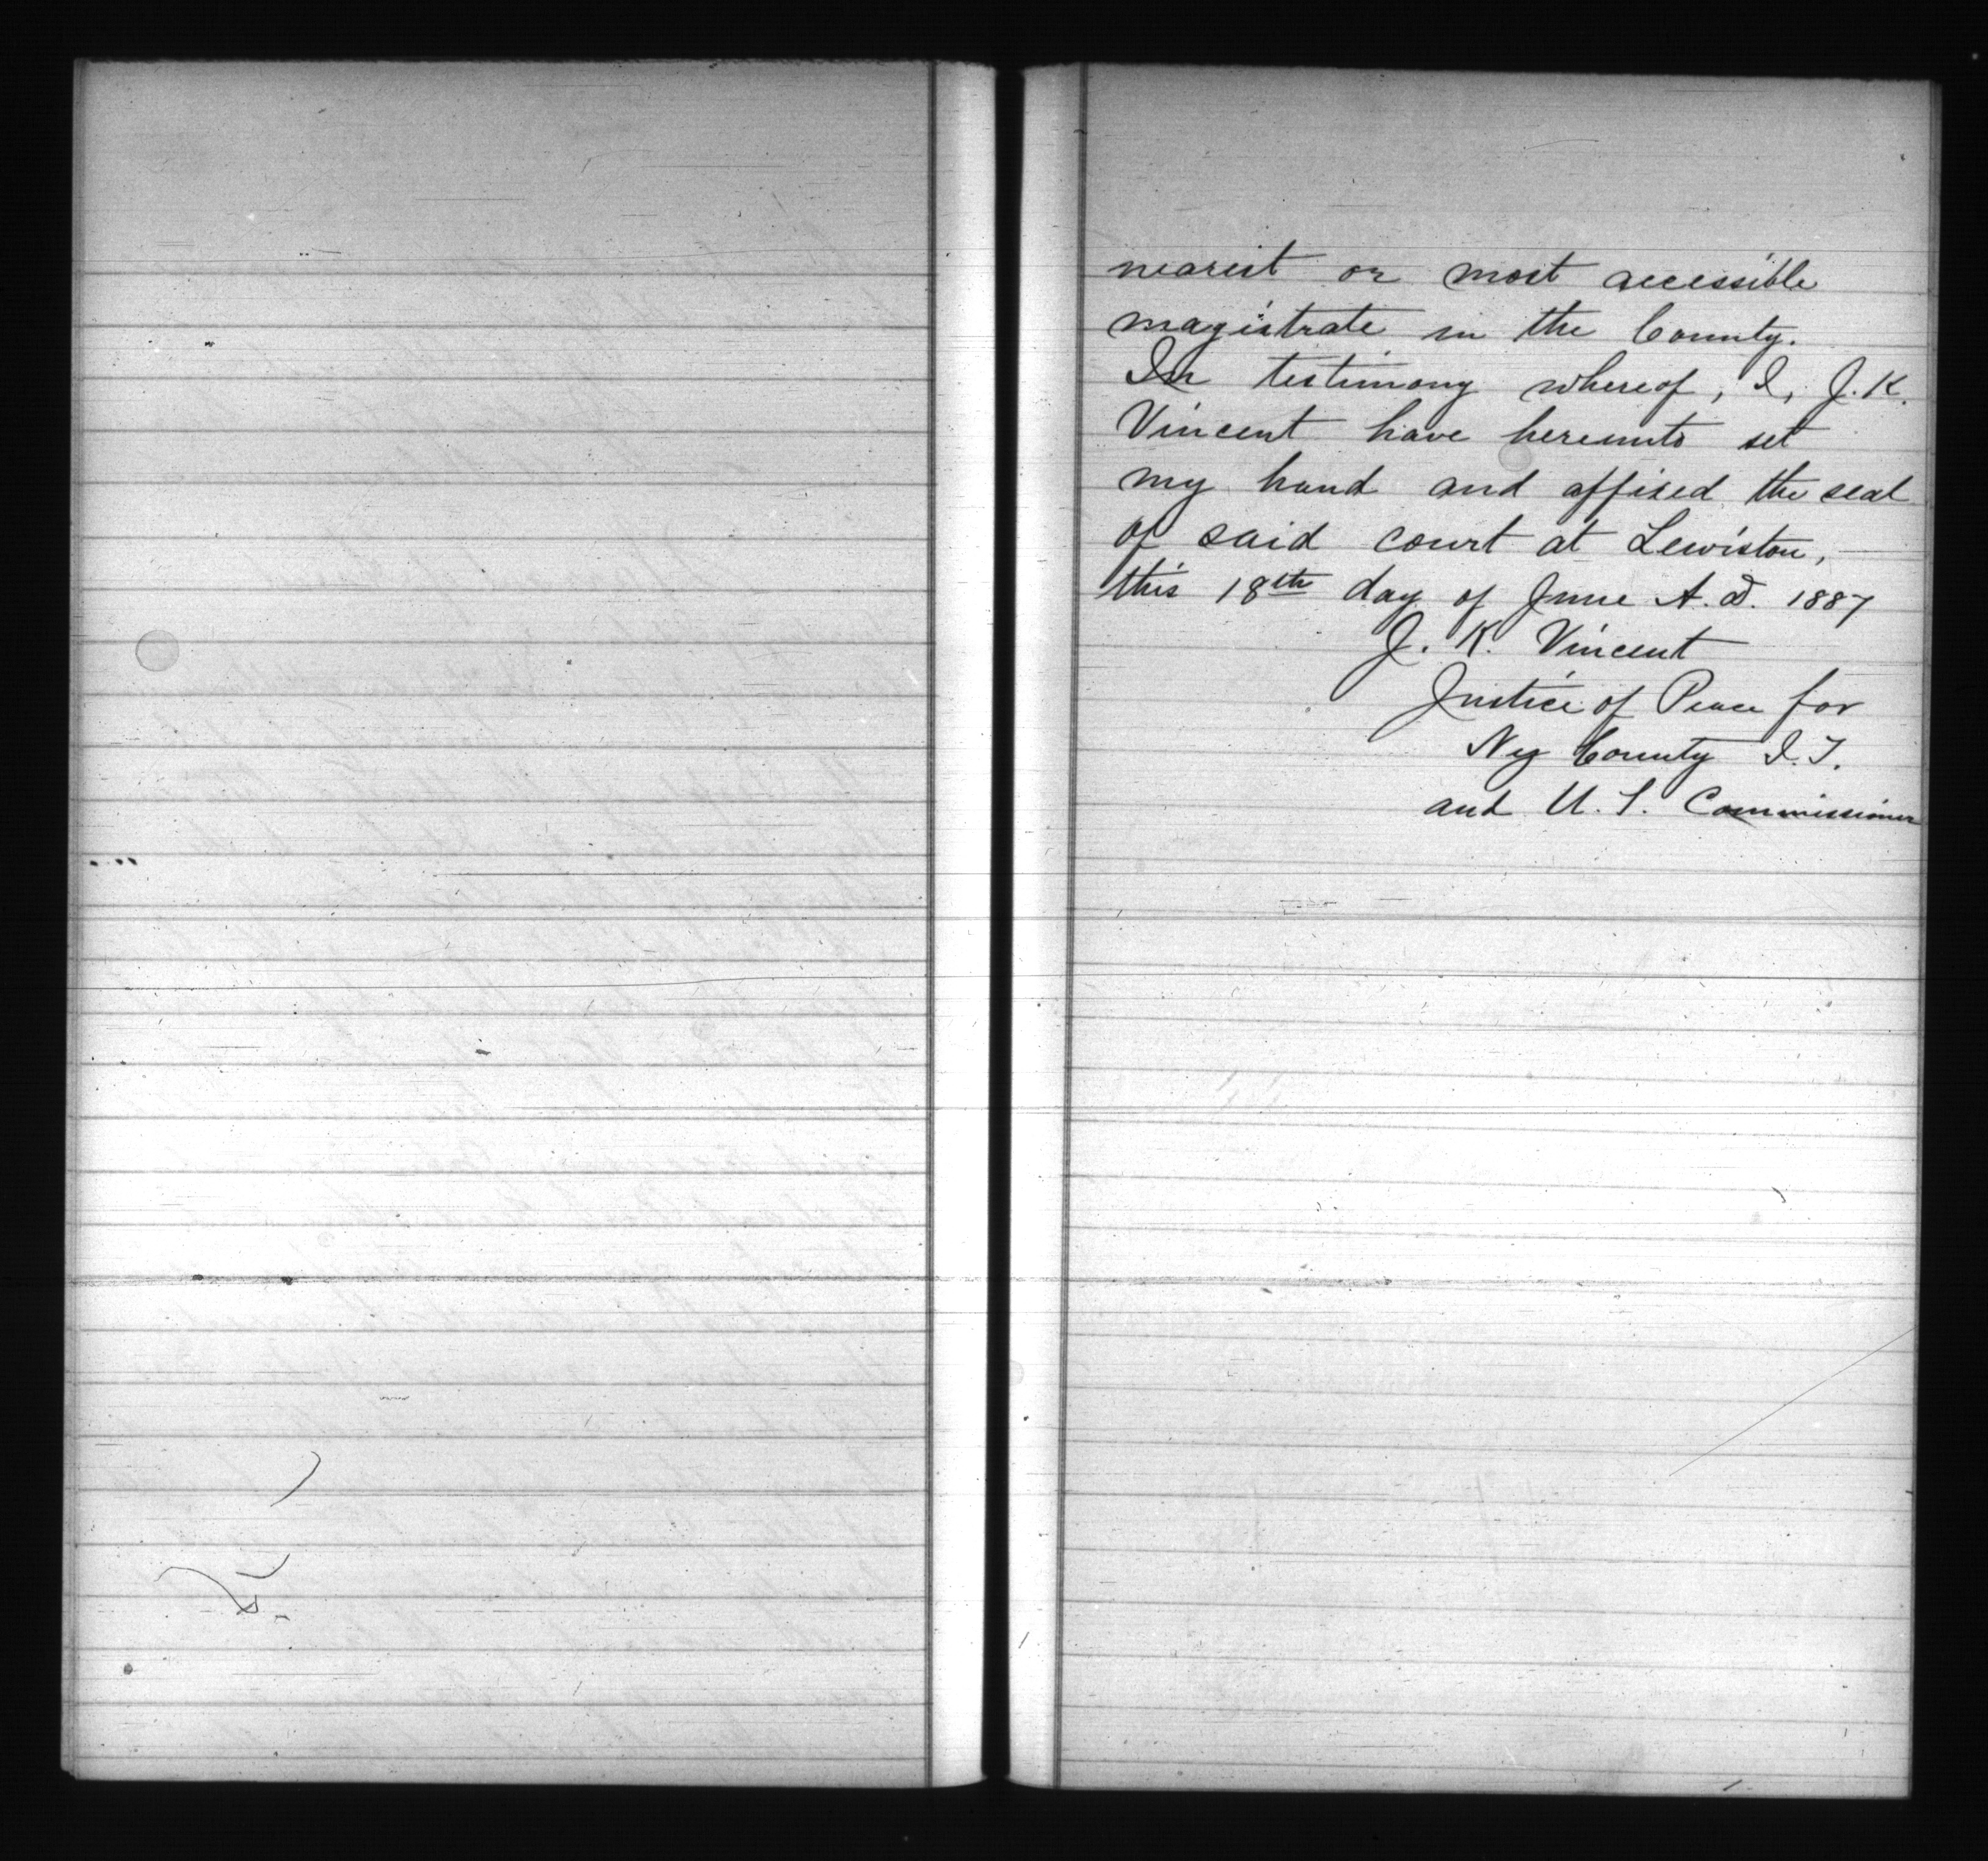 nearest or most accessible
magistrate in the County.
In testimony whereof, I, J. K.
Vincent have hereunto set
my hand and affixed the seal
of said court at Lewiston,
this 18th day of June A. D. 1887
J. K. Vincent
Justice of Peace for
Nez County I. T.
and U. S. Commissioner